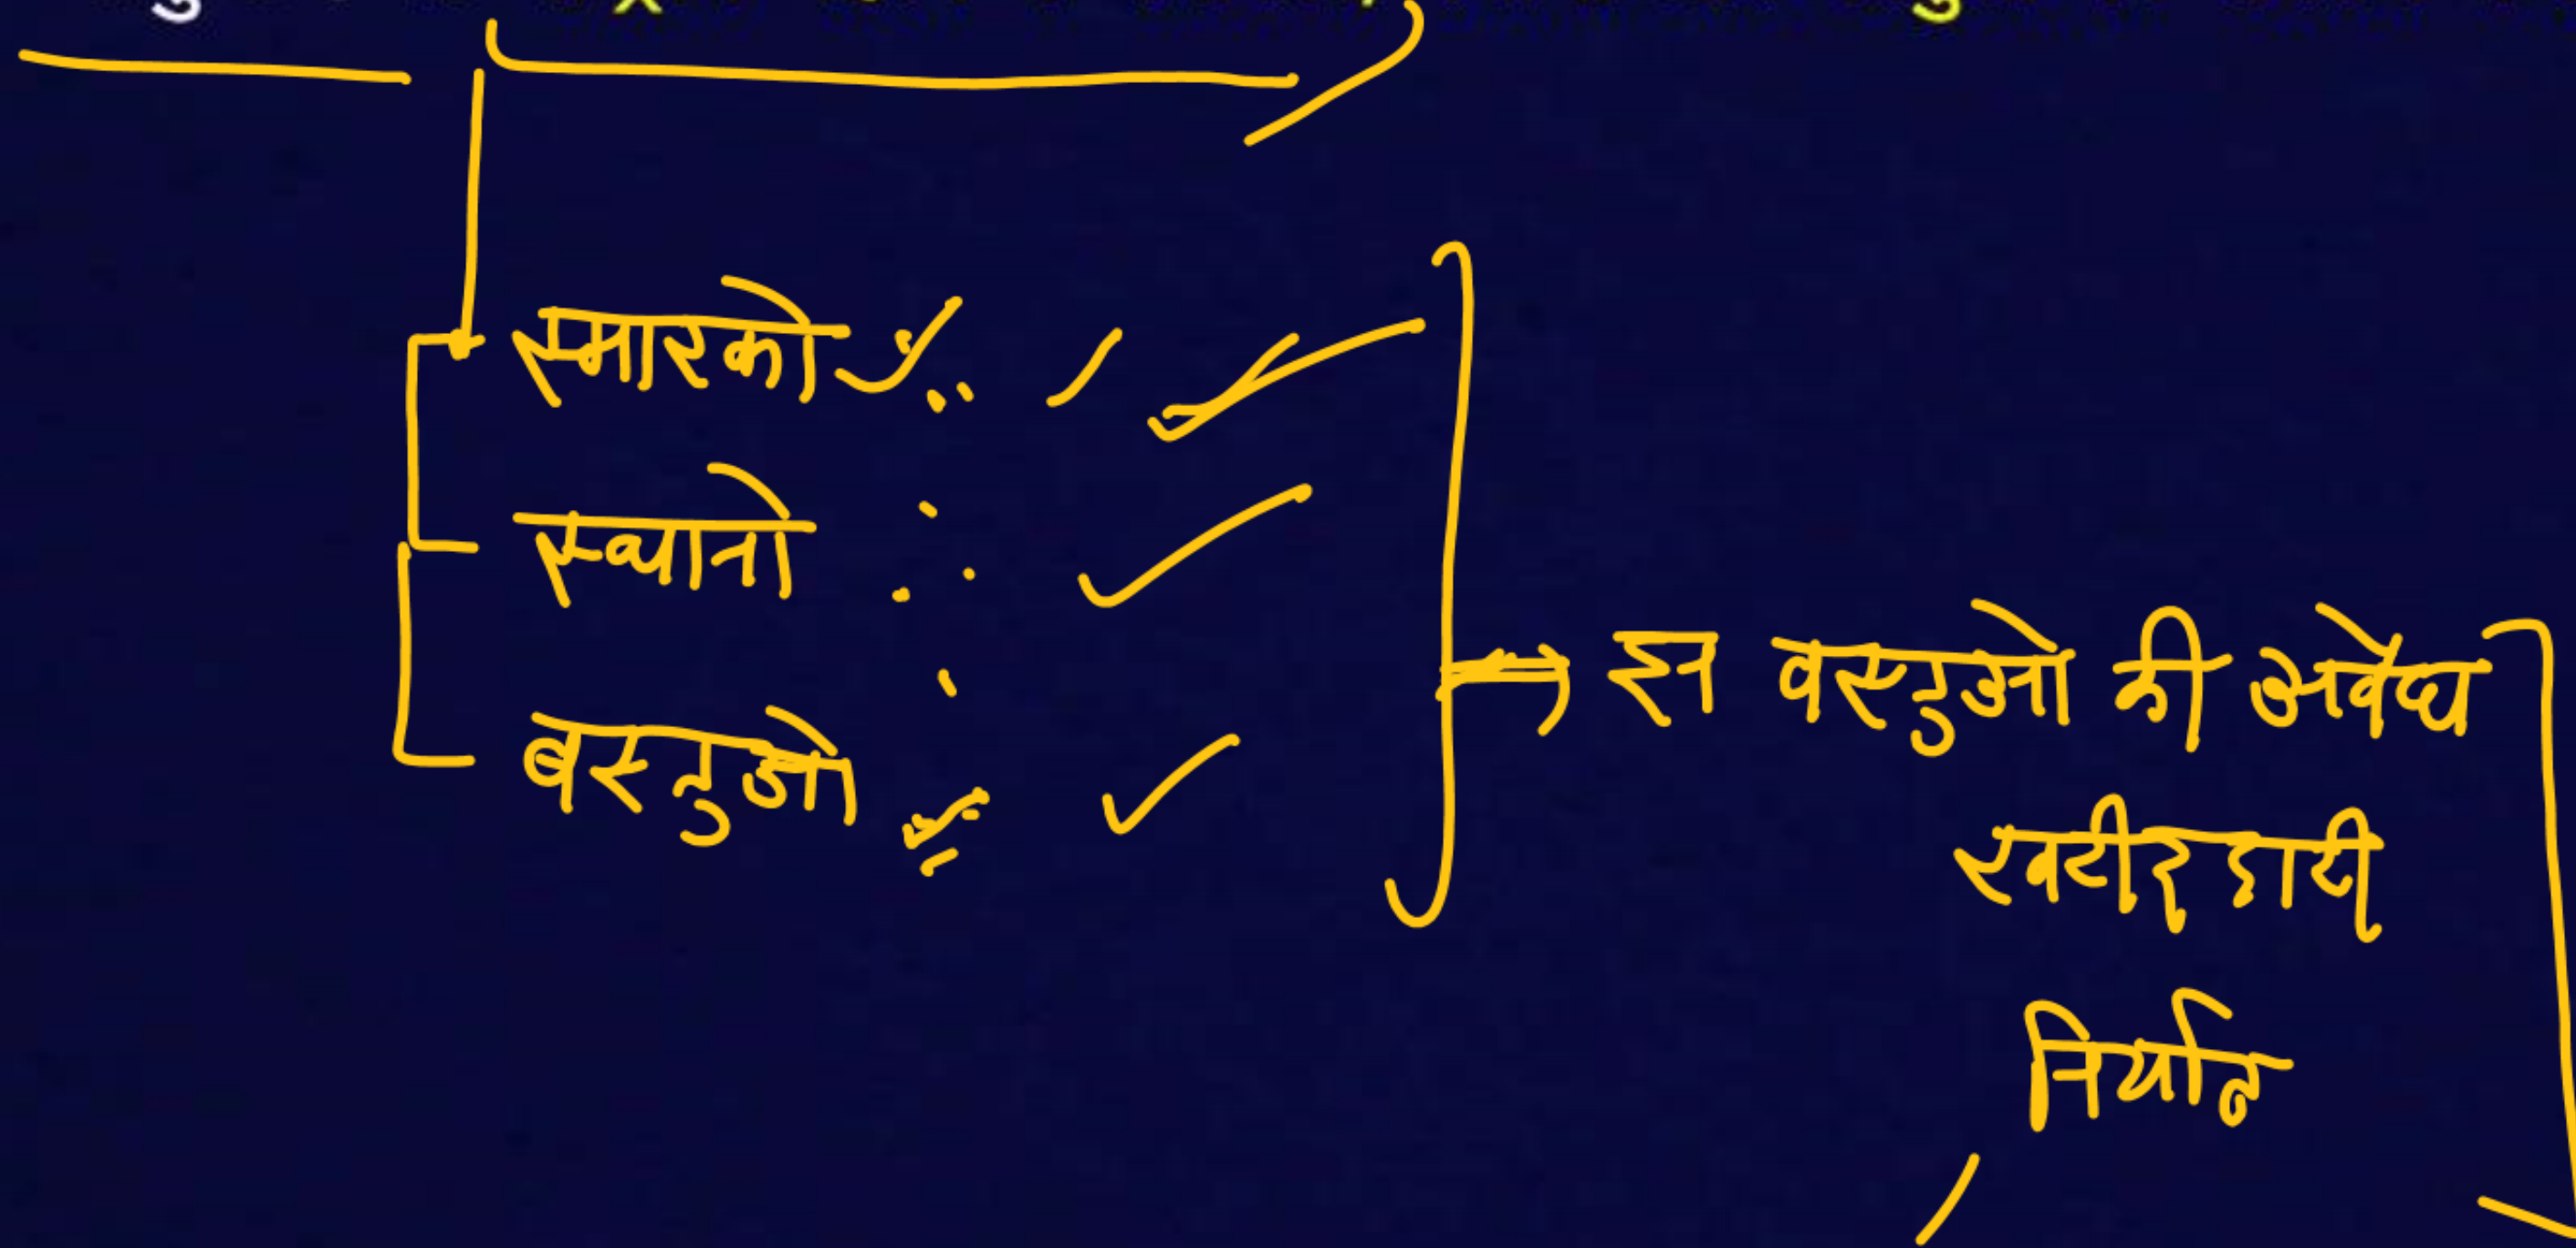 स्मारको
स्थानो
बस्तुओ
इन वस्तुओ की अवैध
खरीद दारी
निर्यात